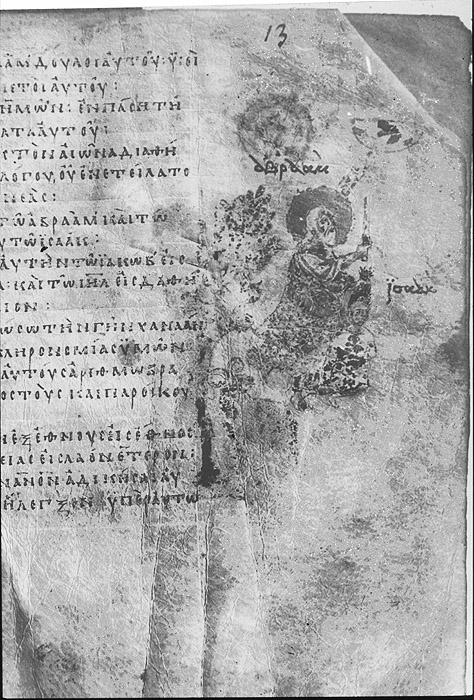 13
ΑΑΜ ΔΟΥΛΟΙ ΑΥΤΟΥ· ΥΙΟΙ
ΚΤΟΙ ΑΥΤΟΥ:
ΗΜΩΝ· ΕΝ ΠΑΣΗ ΤΗ
ΑΤΑ ΑΥΤΟΥ:
Σ ΤΟΝ ΑΙΩΝΑ ΔΙΑΘΗ
ΛΟΓΟΥ, ΟΥ ΕΝΕΤΕΙΛΑΤΟ
ΝΕΑΣ:
ΤΩ ΑΒΡΑΑΜ ΚΑΙ ΤΟΥ
ΥΤΟΥ ΤΩ ΙΣΑΑΚ:
ΑΥΤΗΝ ΤΩ ΙΑΚΩΒ ΕΙΣ
Α· ΚΑΙ ΤΩ ΙΗΛ ΕΙΣ ΔΙΑΘΗ
ΙΟΝ:
ΔΩΣΩ ΤΗΝ ΓΗΝ ΧΑΝΑΑΝ
ΚΛΗΡΟΝΟΜΙΑΣ ΥΜΩΝ
ΑΥΤΟΥΣ ΑΡΙΘΜΩ ΒΡΑ
ΟΣΤΟΥΣ ΚΑΙ ΠΑΡΟΙΚΟΥ
ΕΞ ΕΘΝΟΥΣ ΕΙΣ ΕΘΝΟΣ
ΕΙΑΣ ΕΙΣ ΛΑΟΝ ΕΤΕΡΟΝ:
ΑΝΟΝ ΑΔΙΚΗΣΑΙ ΑΥ
ΗΛΕΓΞΕΝ ΥΠΕΡ ΑΥΤΩ
ἀβραάμ
ἰσαάκ